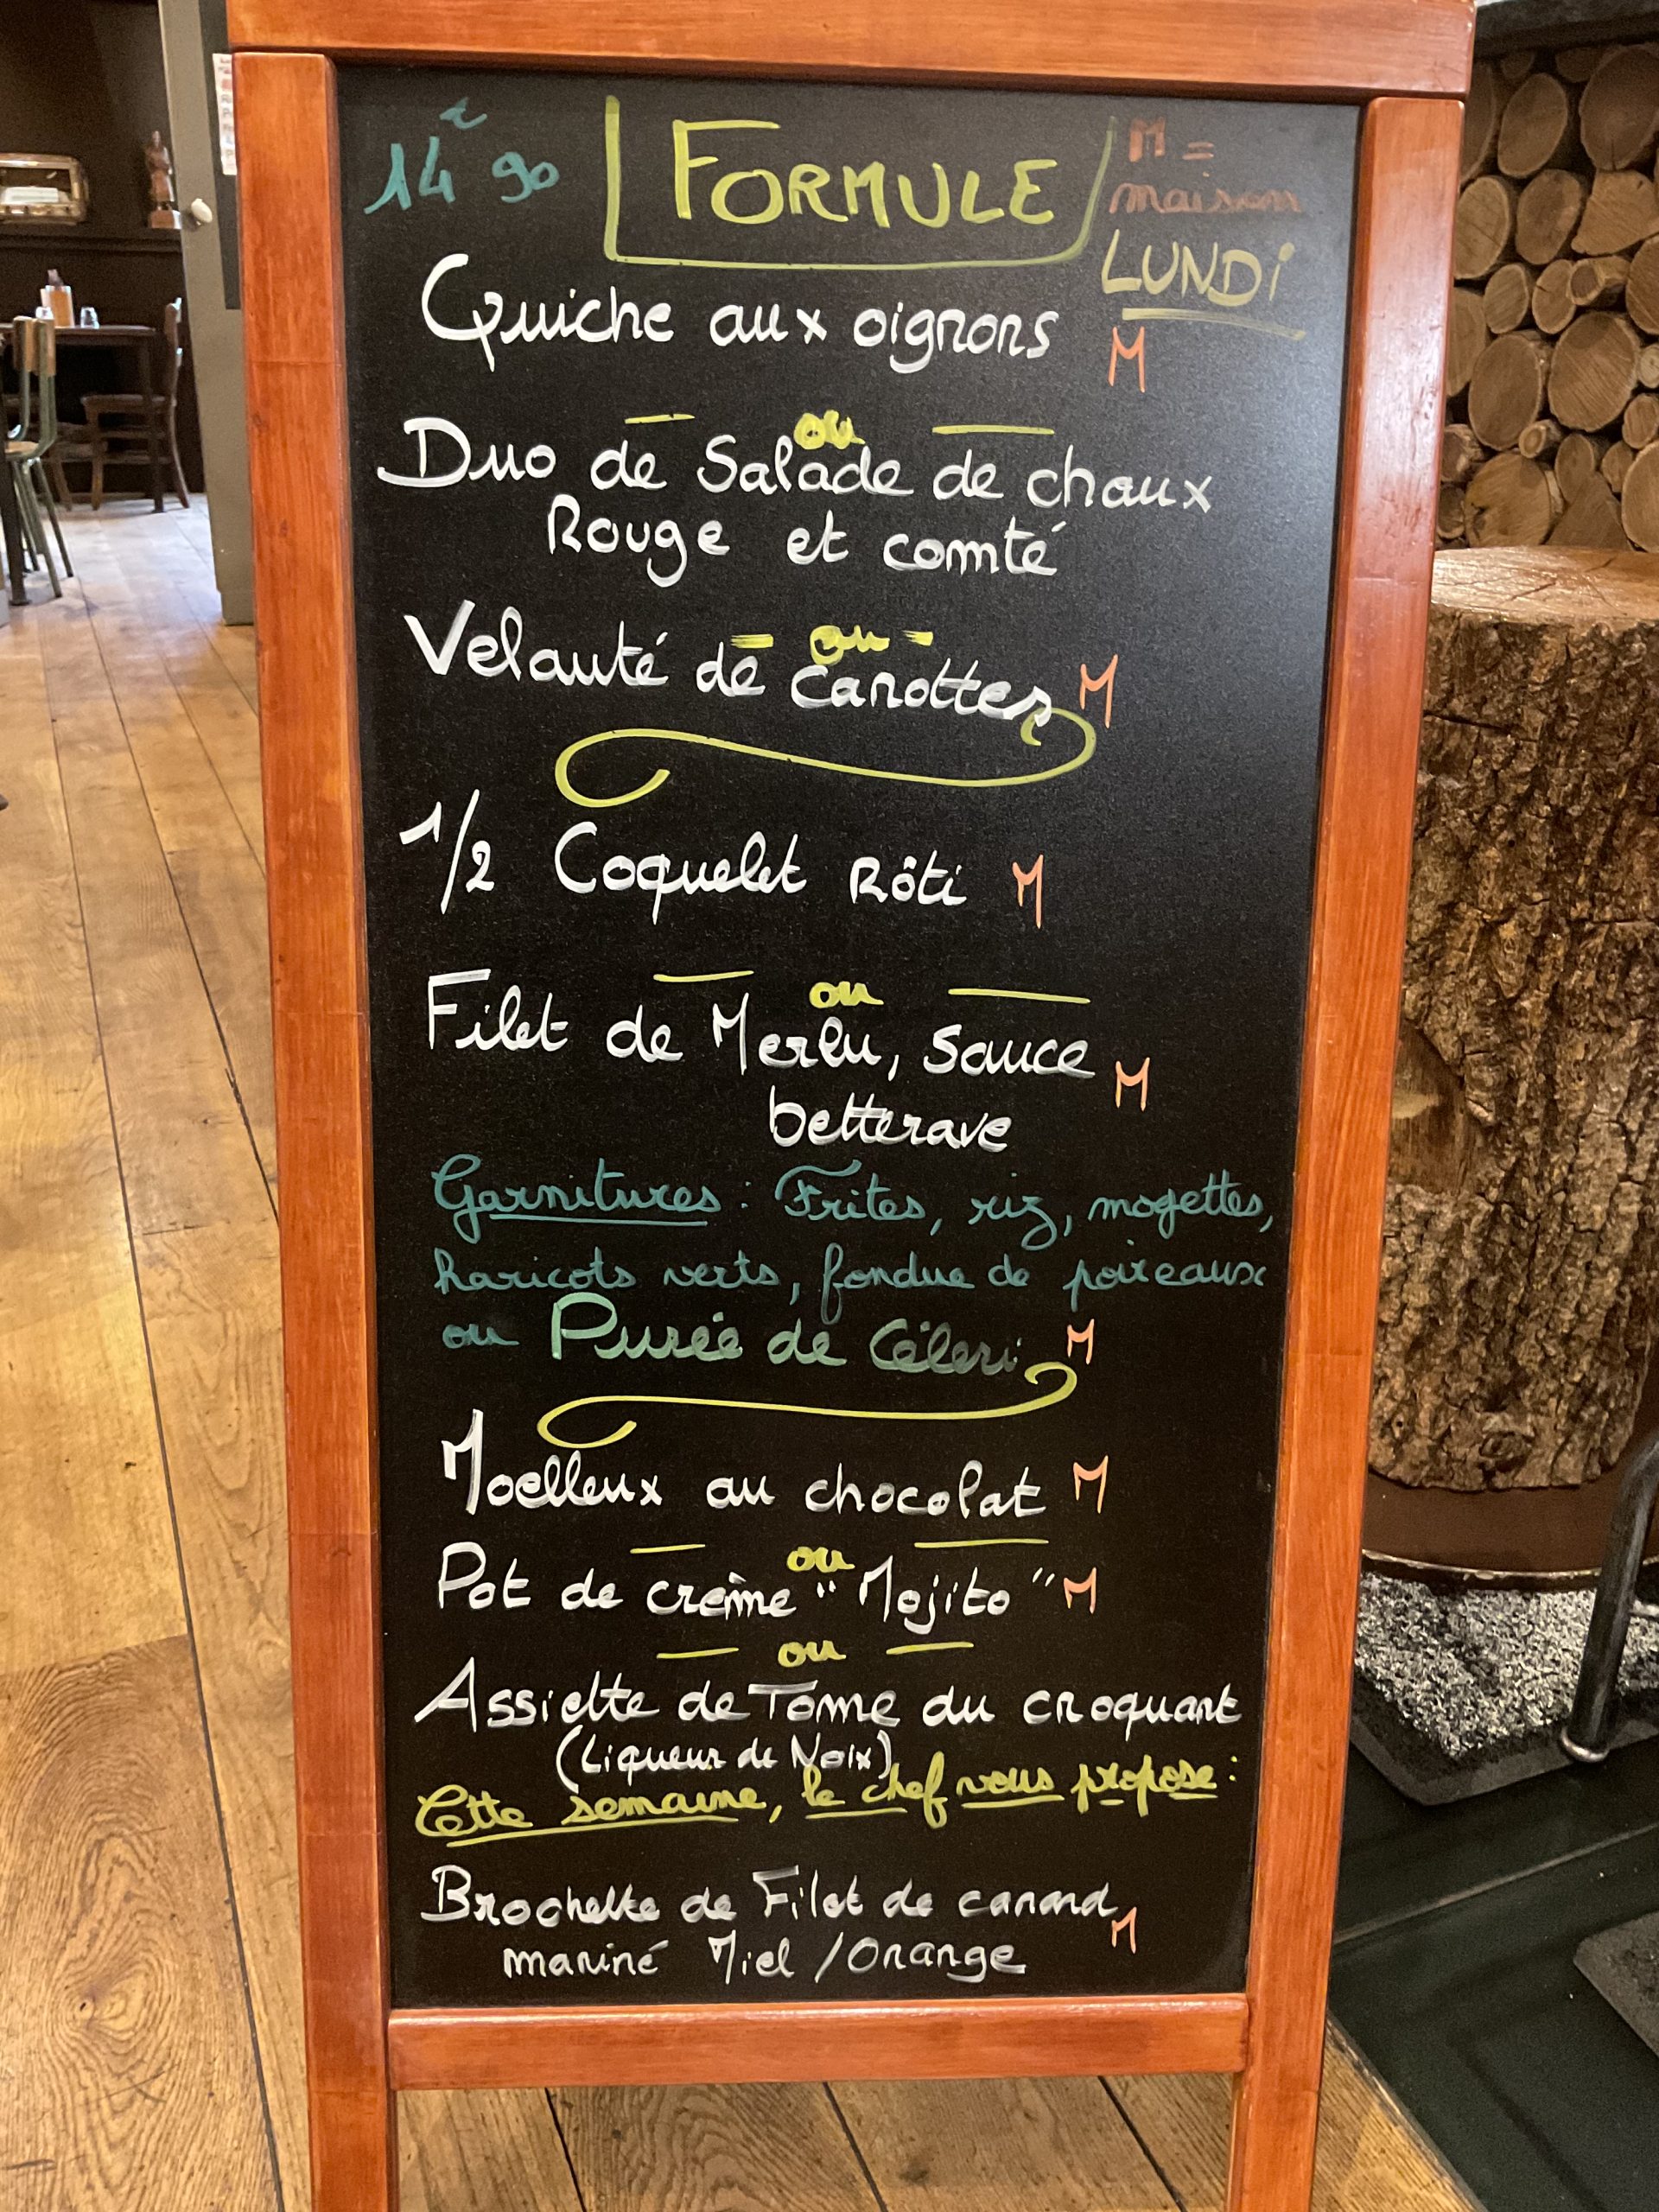 14€90 FORMULE M =
maison
LUNDi
Quiche aux oignons M
ou
Duo de Salade de chaux
Rouge et comté
ou
Velauté de carottes M
1/2 Coquelet Rôti M
ou
Filet de Merlu, sauce M
betterave
Garnitures : Frites, riz, mogettes,
haricots verts, fondue de poireaux
ou Purée de Céleri M
Moelleux au chocolat M
ou
Pot de crème "Mojito" M
ou
Assiette de Tome du croquant
(Liqueur de Noix)
Cette semaine, le chef vous propose :
Brochette de Filet de canard M
mariné Miel /Orange